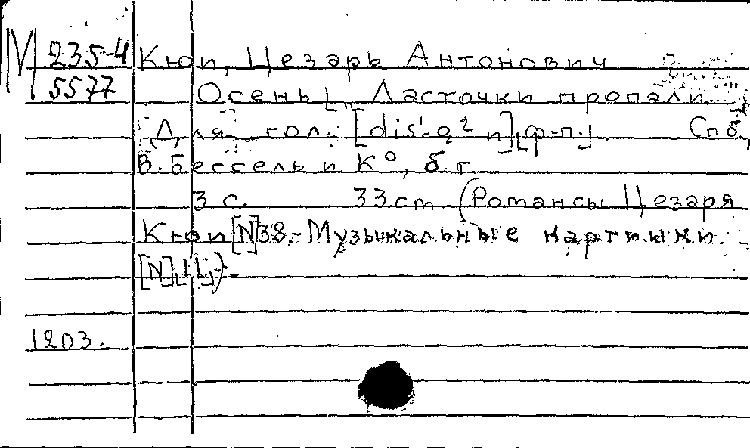 М 235-4 Кюи, Цезарь Антонович
5577 Осень[. Ласточки пропали
Для гол. [dis'-g² и] [ф-п.] Спб,
В. Бессель и К⁰, б.г.
3 с. 33 cm (Романсы Цезаря
Кюи [N]38.- Музыкальные картинки
[N]
1203.